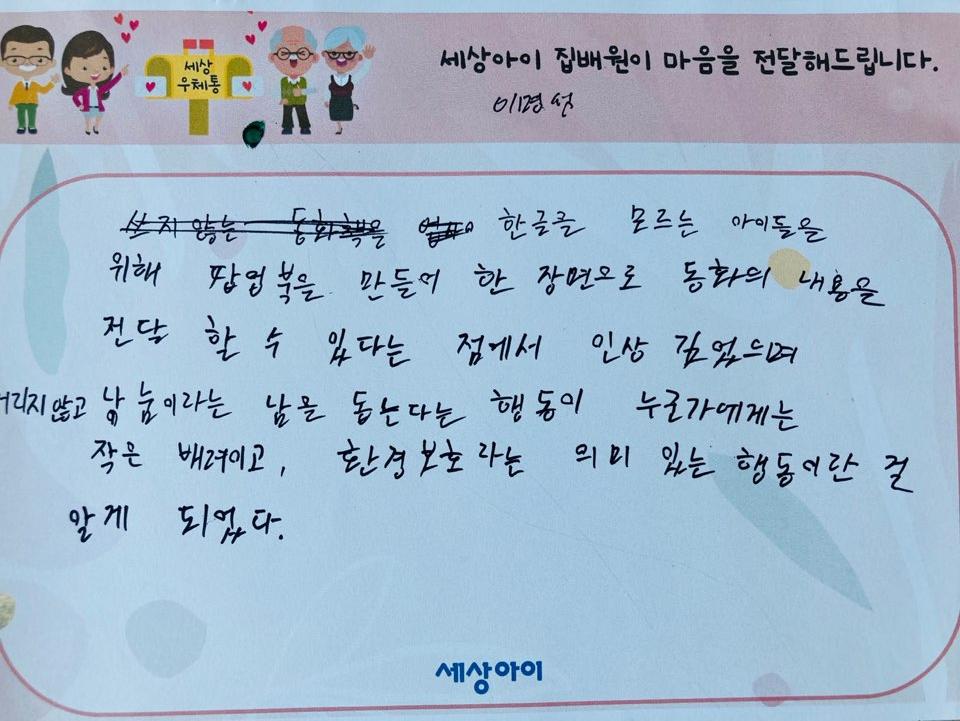 세상
우체통
세상아이 집배원이 마음을 전달해드립니다.
이경선
쓰지 않는 동화책을 한글을 모르는 아이들을
위해 팝업북을 만들어 한 장면으로 동화의 내용을
전달 할 수 있다는 점에서 인상 깊었으며
버리지않고 나눔이라는 남을 돕는다는 행동이 누군가에게는
작은 배려이고, 환경보호라는 의미 있는 행동이란 걸
알게 되었다.
세상아이